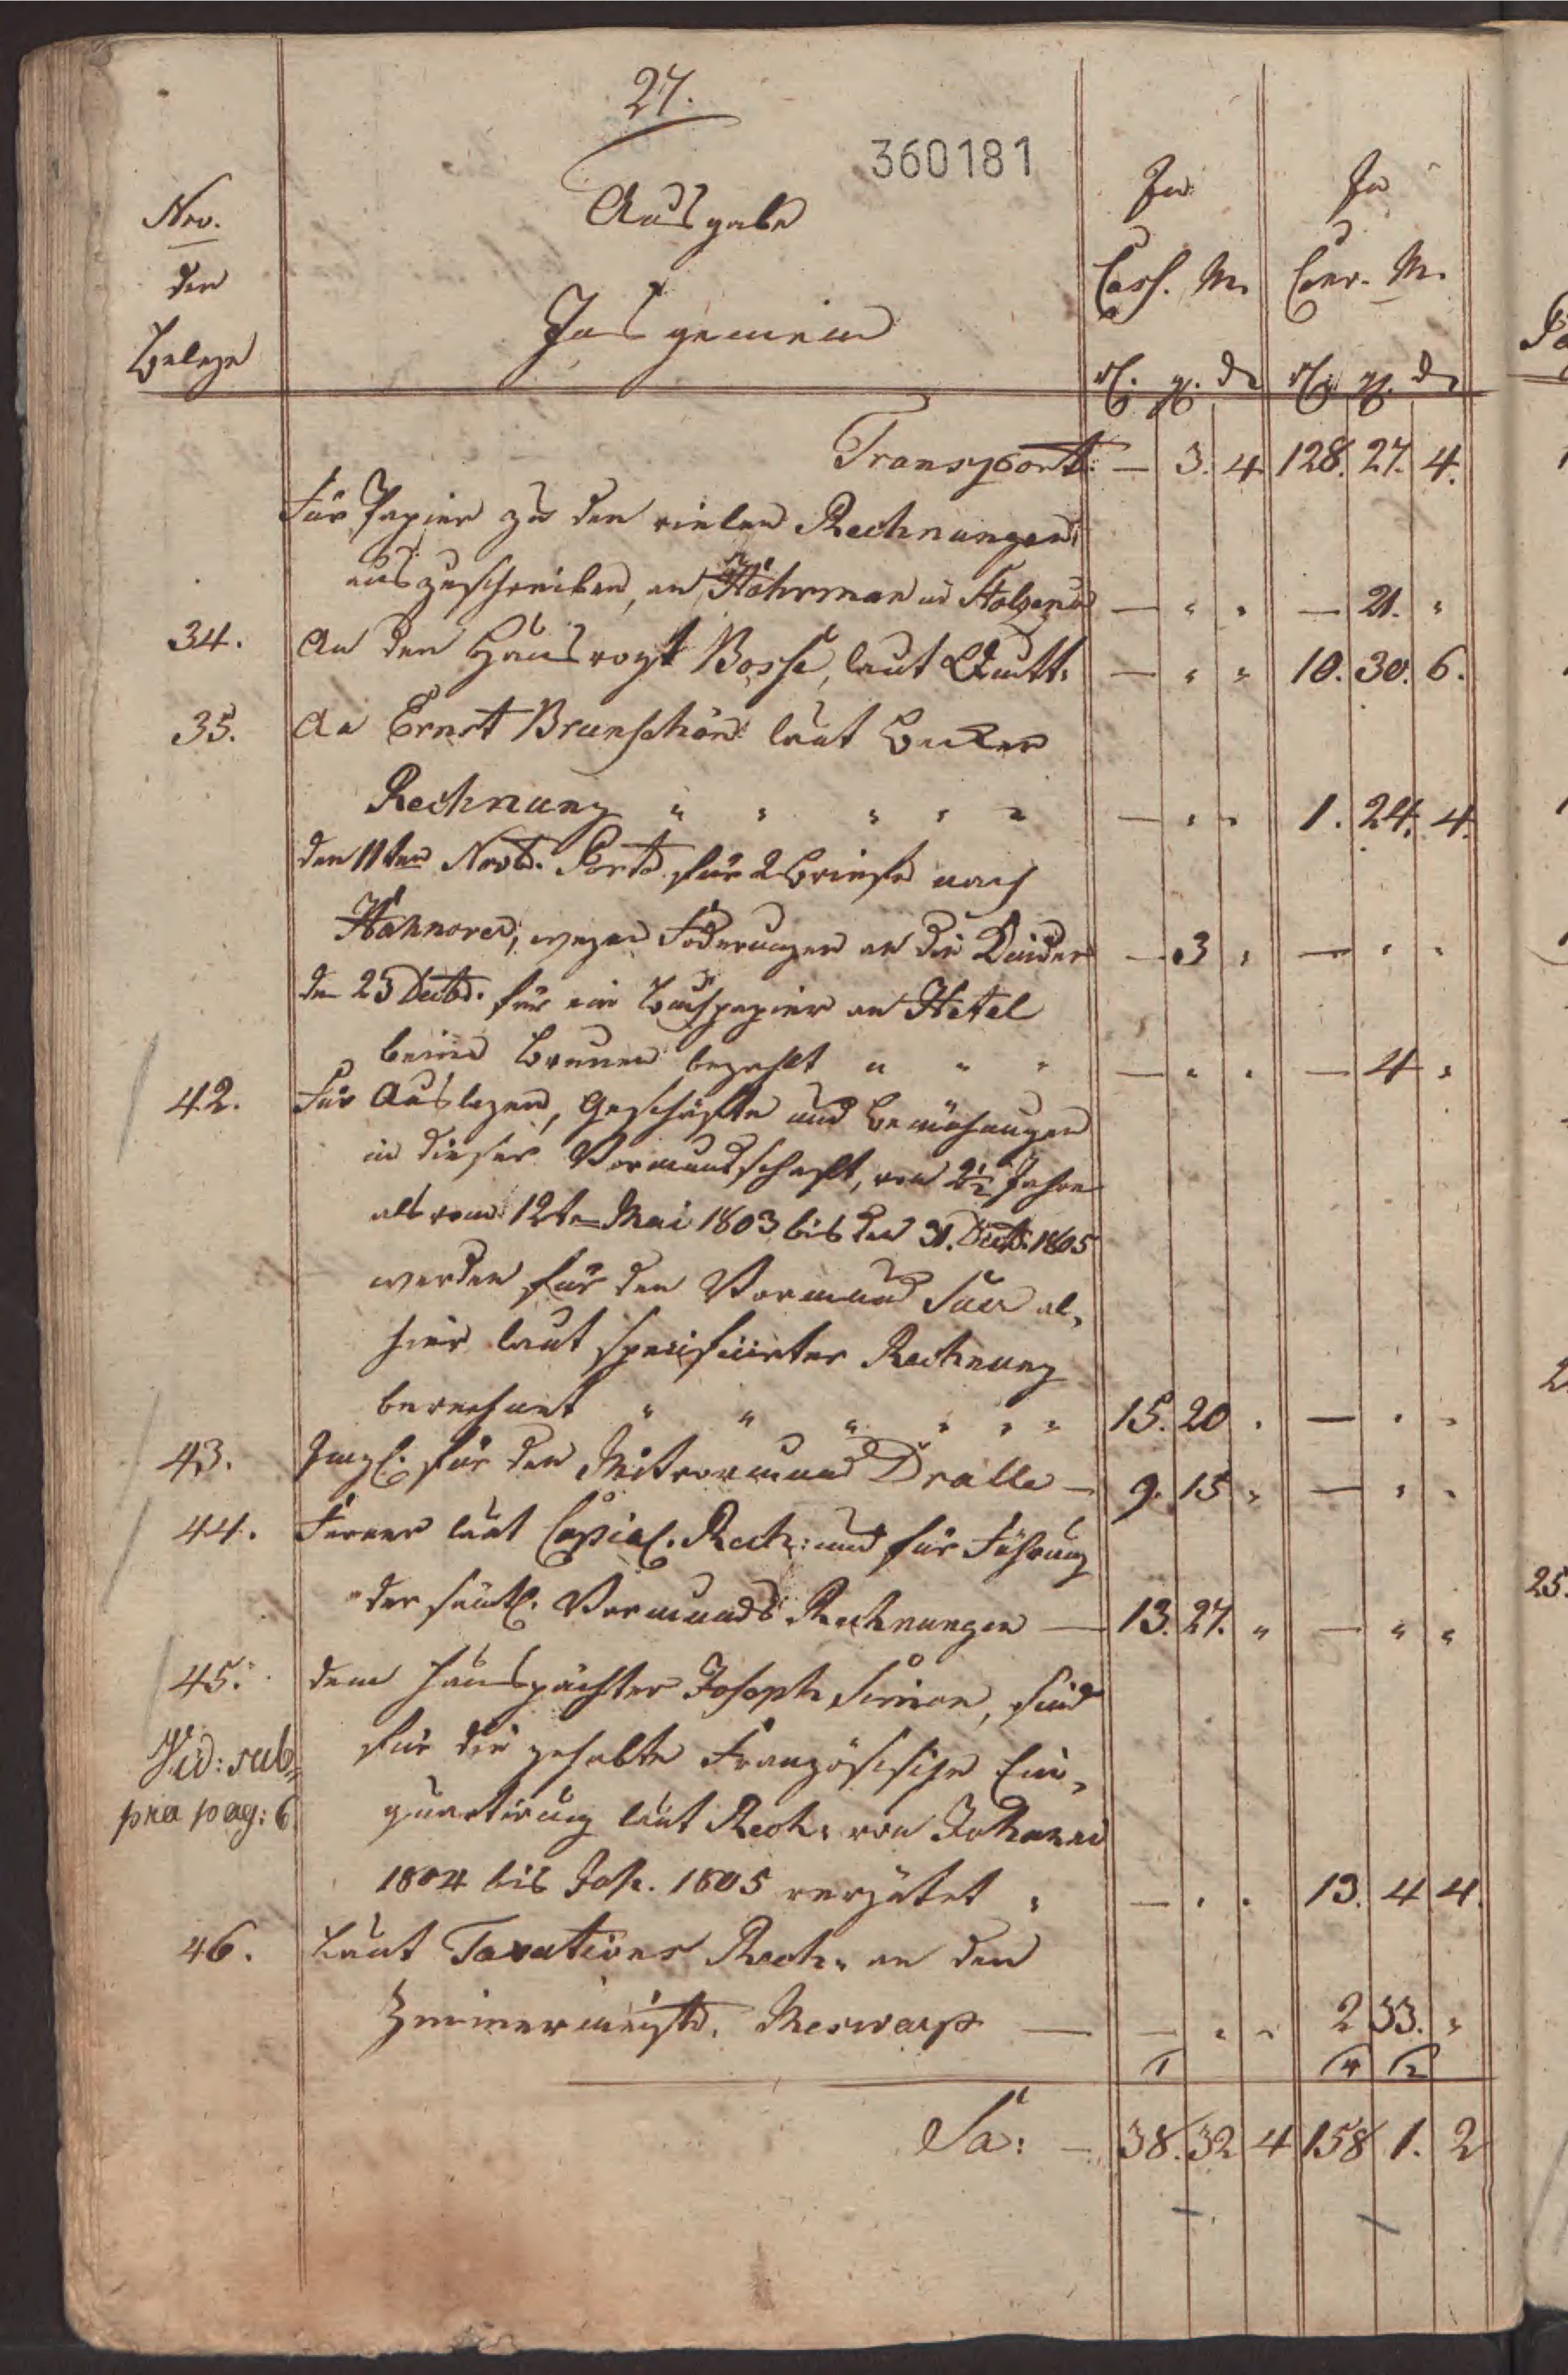 27.
360181
Nro.
der
Belege
Ausgabe
Insgemein
In
Cass. M.
In
Conv. M.
rl. gl. d.
rl. gl. d.
Transport: — 3. 4 128. 27. 4.
Für Papier zu den vielen Rechnungen
auszuschreiben, an Höhrman in Holzen — " " — 21. "
34. An den Hausvogt Bosse, laut Quitt: — " " 10. 30. 6.
35. An Ernst Brunschön laut
Rechnung " " " " " — " " 1. 24. 4.
den 11ten Novb. Porto für 2 Briefe nach
Hannover, wegen Foderungen an die — 3 " — " "
den 23 Decbr. für ein papier an Hetel
beim bezahlt " " " — " " — 4 "
42. Für Auslagen, Geschäfte und Bemühungen
in dieser Vormundschaft, von 2½ Jahre
als vom 12ten Mai 1803 bis den 31. Decb. 1805
werden für den Vormund al-
hier laut specificirter Rechnung
berechnet " " " " " " 15. 20 " — " "
43. Imgl. für den Mitvormund Dralle — 9. 15 " — " "
44. Ferner laut Copial. Rech: und für Führung
der sämtl. Vormunds Rechnungen — 13. 27. " — " "
45. dem Hauspächter Joseph Simon, sind
für die gehabte Französische Ein-
Vid: sub
pra pag: 6
quartirung laut Rech: von Johanni
1804 bis Joh. 1805 vergütet " — " " 13. 4 4.
46. Laut Taxations Rech: an den
Zimmermeistr. Meswarp — — " " 2 33. "
Sa: — 38. 32 4 158 1. 2